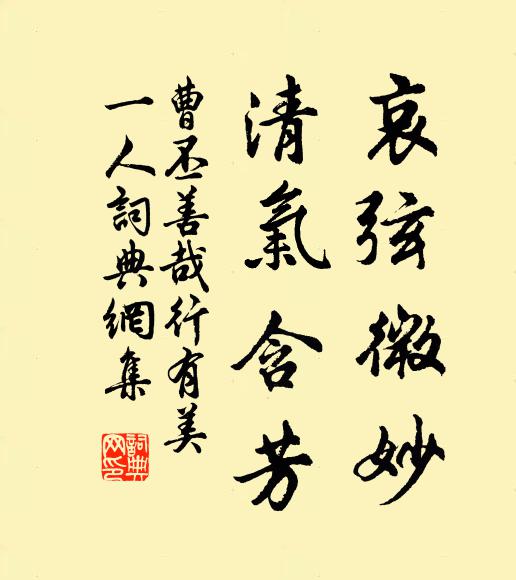 哀弦微妙
清氣含芳
曹丕善哉行有美
一人詞典網集
詞典
网印